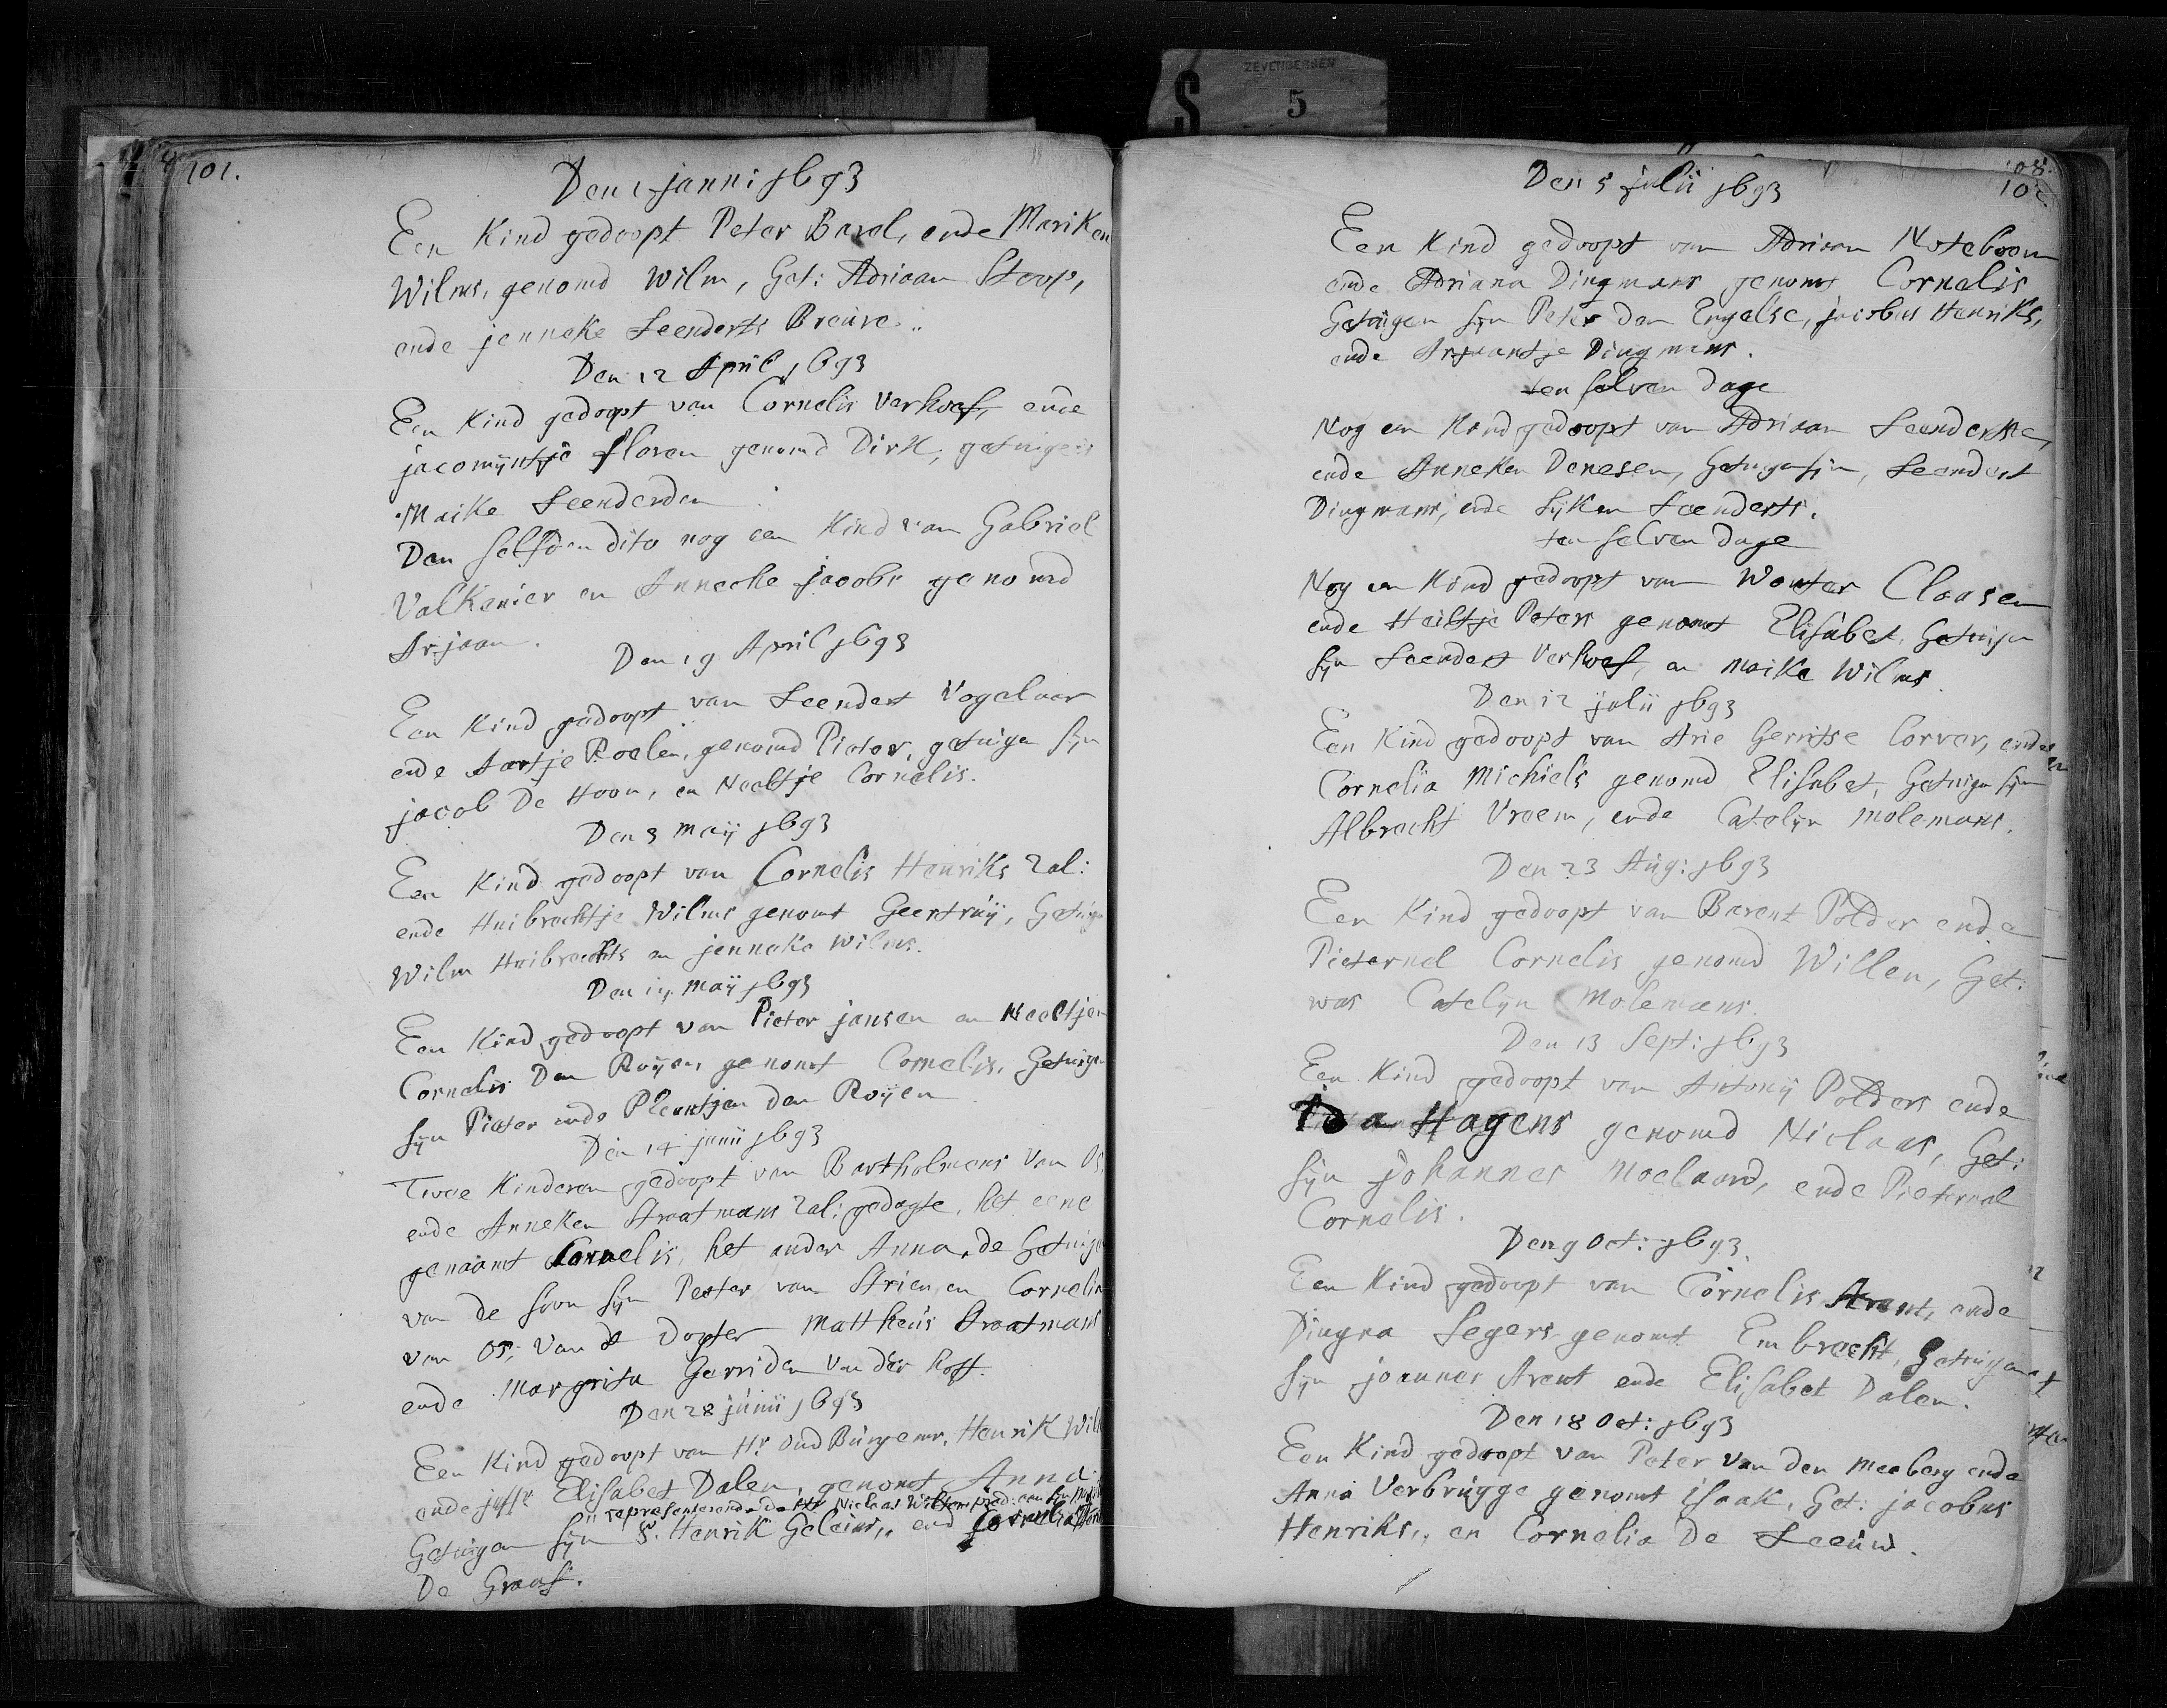 ZEVENBERGEN
S 5
101.
Den 1 janni 1693
Een Kind gedoopt Peter Barel, ende Mariken
Wilms, genomd Wilm, Get: Adriaan Stoop,
ende jenneke Leenderts Breure.
Den 12 April 1693
Een Kind gedoopt van Cornelis Verhoef, ende
jacomijntje floren genomd Dirk, getuigen
Maike Leenderden
Den selfden dito nog een Kind van Gabriel
Valkenier en Annecke jacobs genomd
Arjaan.
Den 19 April 1693
Een Kind gedoopt van Leendert Vogelaar
ende Aertje Roelen, genomd Pieter, getuigen sijn
jacob De Hoon, en Neeltje Cornelis.
Den 3 Maij 1693
Een Kind gedoopt van Cornelis Henriks Zal:
ende Huibrechtje Wilms genomt Geertruij, Getuig
Wilm Huibrechts en jenneke Wilms.
Den 14 Maij 1693
Een Kind gedoopt van Pieter jansen en Neeltjen
Cornelis Den Roijen, genomt Cornelis, Getuigen
sijn Pieter ende Pleuntjen den Roijen
Den 14 junii 1693
Twee Kinderen gedoopt van Bartholmeus Van Os
ende Anneken Straatmans Zal: gedagte, het eene
genaamt Cornelis, het ander Anna, de Getuigen
van de soon sijn Peeter van Strien en Cornelia
van Os, Van de Dogter Mattheus Straatmans
ende Margrita Gerriden Van der hoff.
Den 28 junii 1693
Een Kind gedoopt van Hr Oud Burgemr. Henrik Will
ende juffr Elisabet Dalen, genomt Anna
representerende de Hr Niclaas Willem
Getuigen sijn Sr. Henrik Geleins, end Cornelia
De Graaf.
108.
102.
Den 5 julii 1693
Een Kind gedoopt van Adriaan Noteboom
ende Adriana Dingmans genomt Cornelis
Getuigen sijn Peter den Engelse, jacobus Henriks,
ende Arjaantje Dingmans.
ten selven dage
Nog een Kind gedoopt van Adriaan Leendertse,
ende Anneken Denesen, Getuigen sijn, Leendert
Dingmans, ende Sijken Leenderts.
ten selven Dage
Nog een Kind gedoopt van Wouter Claasen
ende Heiltje Peters genomt Elisabet. Getuigen
sijn Leendert Verhoef, en Maike Wilms
Den 12 julii 1693
Een Kind gedoopt van Arie Gerritse Corver, ende
Cornelia Michiels genomd Elisabet, Getuigen sijn
Albrecht Vreem, ende Catelijn Molemans.
Den 23 Aug: 1693
Een Kind gedoopt van Barent Polder ende
Pieternel Cornelis genomd Willem, Get:
was Catelijn Molemans.
Den 13 Sept: 1693
Een Kind gedoopt van Antonij Polders ende
Ida Hagens genomd Niclaas, Get:
sijn Johannes Moelaard, ende Pieternel
Cornelis.
Den 9 Oct: 1693.
Een Kind gedoopt van Cornelis Arent, ende
Dingna Segers genomt Embrecht, Getuigen
sijn joannes Arent ende Elisabet Dalen.
Den 18 Oct: 1693
Een Kind gedoopt van Peter Van den Meeberg ende
Anna Verbrugge genomt isaak, Get: jacobus
Henriks,, en Cornelia De Leeuw.